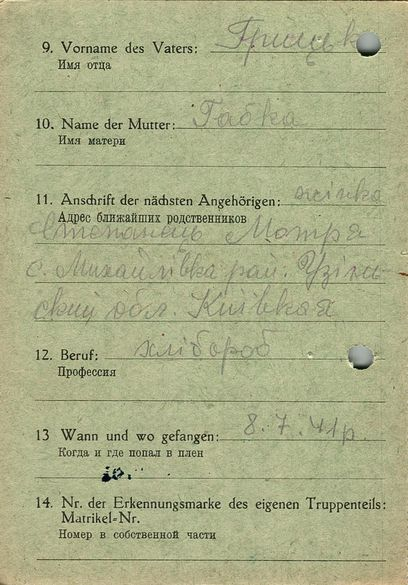 9. Vorname des Vaters: Грицько
Имя отца
10. Name der Mutter: Габка
Имя матери
11. Anschrift der nächsten Angehörigen: жінка
Адрес ближайших родственников
Степанець Мотря
с. Михайлівка рай. Узін-
ский обл. Київкая
12. Beruf: хлібороб
Профессия
13 Wann und wo gefangen: 8.7.41р.
Когда и где попал в плен
14. Nr. der Erkennungsmarke des eigenen Truppenteils:
Matrikel-Nr.
Номер в собственной части